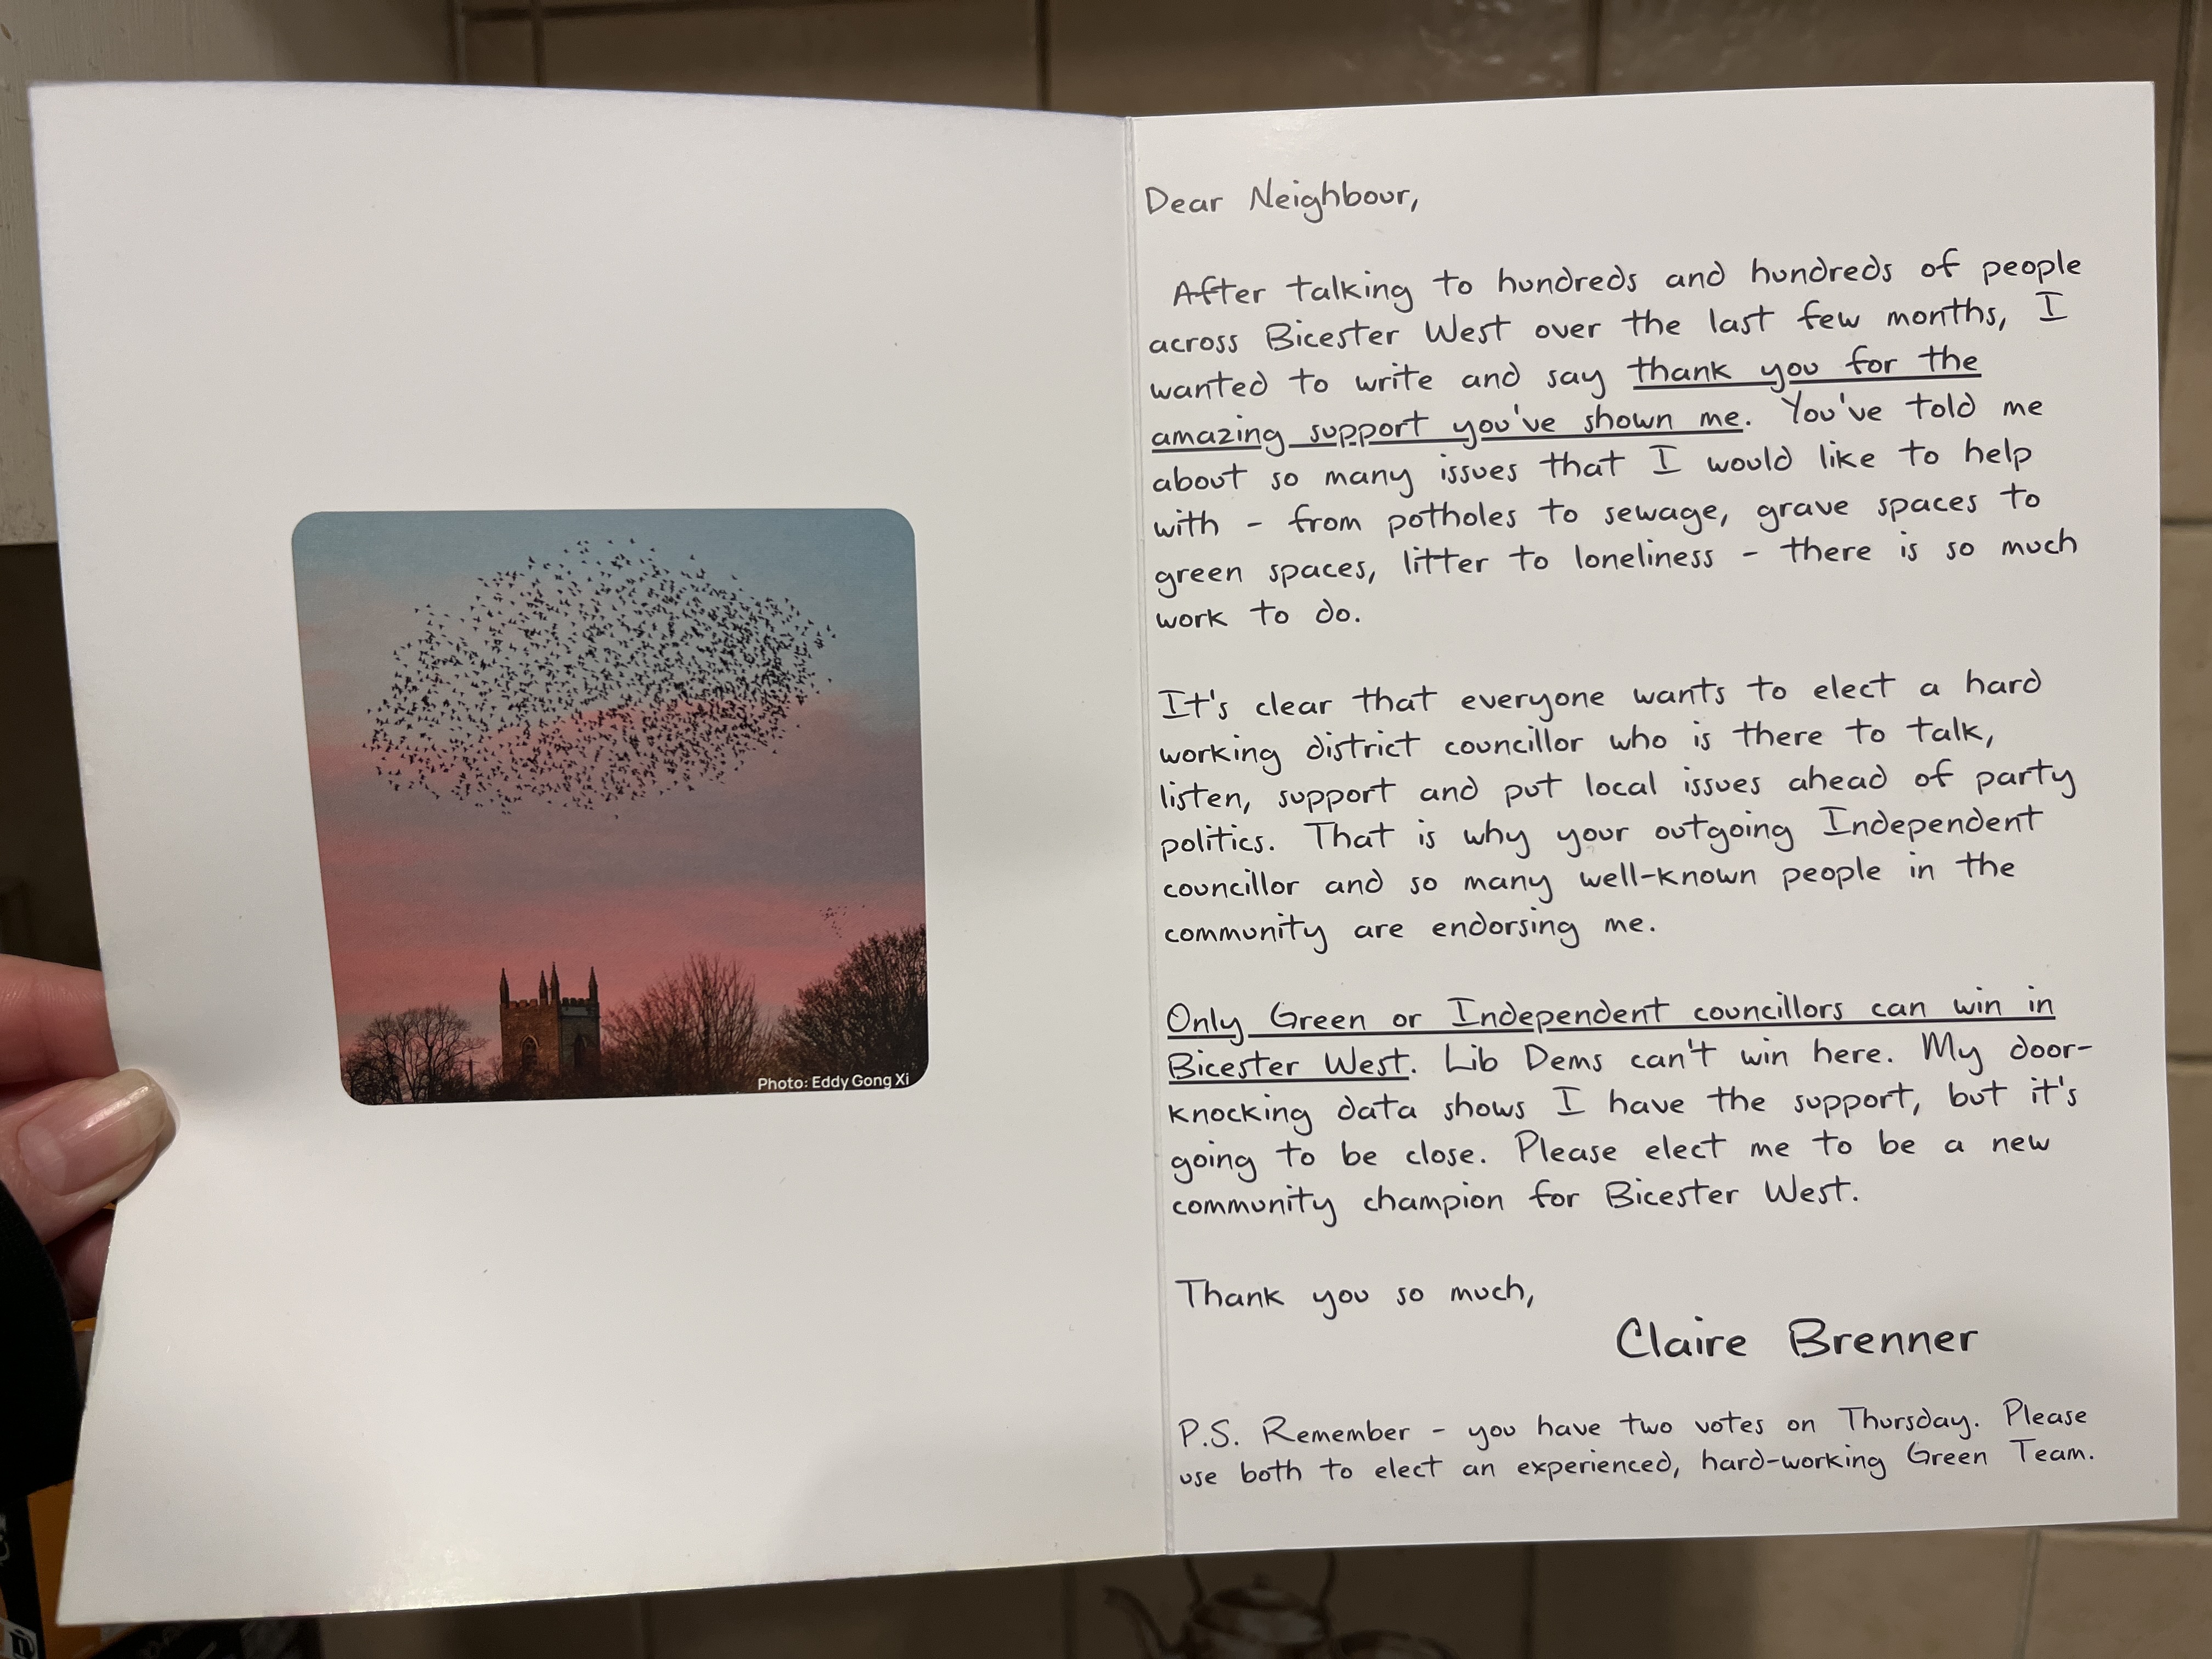 Photo: Eddy Gong Xi
Dear Neighbour,
After talking to hundreds and hundreds of people
across Bicester West over the last few months, I
wanted to write and say thank you for the
amazing support you've shown me. You've told me
about so many issues that I would like to help
with - from potholes to sewage, grave spaces to
green spaces, litter to loneliness - there is so much
work to do.
It's clear that everyone wants to elect a hard
working district councillor who is there to talk,
listen, support and put local issues ahead of party
politics. That is why your outgoing Independent
councillor and so many well-known people in the
community are endorsing me.
Only Green or Independent councillors can win in
Bicester West. Lib Dems can't win here. My door-
knocking data shows I have the support, but it's
going to be close. Please elect me to be a new
community champion for Bicester West.
Thank you so much,
Claire Brenner
P.S. Remember - you have two votes on Thursday. Please
use both to elect an experienced, hard-working Green Team.